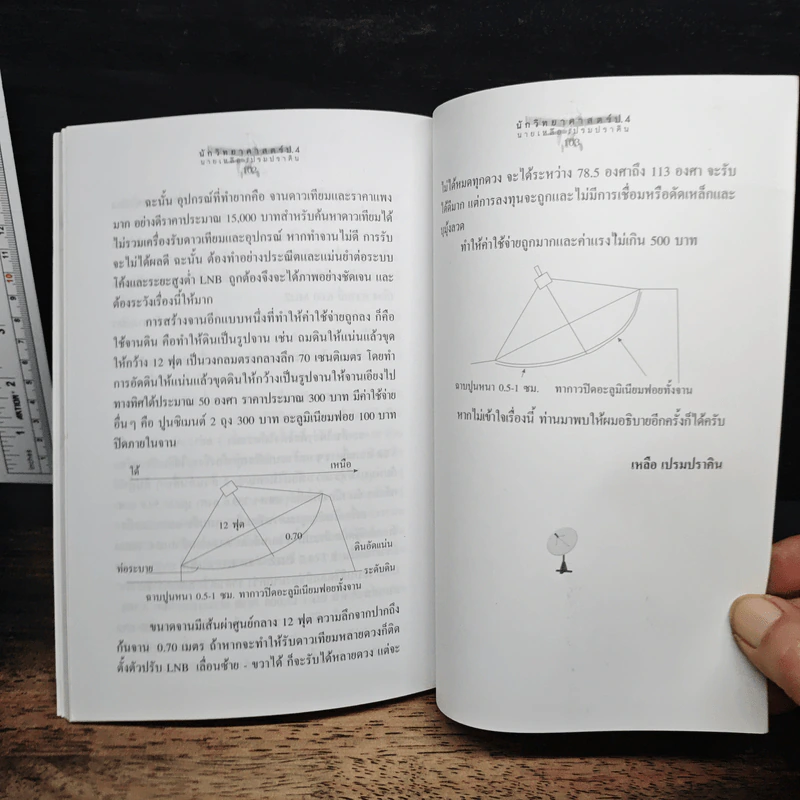 นักวิทยาศาสตร์ป.4
นายเหลือ เปรมปราคิน
ฉะนั้น อุปกรณ์ที่ทำยากคือ จานดาวเทียมและราคาแพง
มาก อย่างดีราคาประมาณ 15,000 บาทสำหรับค้นหาดาวเทียมได้
ไม่รวมเครื่องรับดาวเทียมและอุปกรณ์ หากทำจานไม่ดี การรับ
จะไม่ได้ผลดี ฉะนั้น ต้องทำอย่างประณีตและแม่นยำต่อระบบ
โค้งและระยะสูงต่ำ LNB ถูกต้องจึงจะได้ภาพอย่างชัดเจน และ
ต้องระวังเรื่องนี้ให้มาก
การสร้างจานอีกแบบหนึ่งที่ทำให้ค่าใช้จ่ายถูกลง ก็คือ
ใช้จานดิน คือทำให้ดินเป็นรูปจาน เช่น ถมดินให้แน่นแล้วขุด
ให้กว้าง 12 ฟุต เป็นวงกลมตรงกลางลึก 70 เซนติเมตร โดยทำ
การอัดดินให้แน่นแล้วขุดดินให้กว้างเป็นรูปจานให้จานเอียงไป
ทางทิศใต้ประมาณ 50 องศา ราคาประมาณ 300 บาท มีค่าใช้จ่าย
อื่นๆ คือ ปูนซิเมนต์ 2 ถุง 300 บาท อะลูมิเนียมฟอย 100 บาท
ปิดภายในจาน
ใต้ เหนือ
12 ฟุต
0.70
ดินอัดแน่น
ท่อระบาย ระดับดิน
ฉาบปูนหนา 0.5-1 ซม. ทากาวปิดอะลูมิเนียมฟอยทั้งจาน
ขนาดจานมีเส้นผ่าศูนย์กลาง 12 ฟุต ความลึกจากปากถึง
ก้นจาน 0.70 เมตร ถ้าหากจะทำให้รับดาวเทียมหลายดวงก็ติด
ตั้งตัวปรับ LNB เลื่อนซ้าย - ขวาได้ ก็จะรับได้หลายดวง แต่จะ
นักวิทยาศาสตร์ป.4
นายเหลือ เปรมปราคิน
103
ไม่ได้หมดทุกดวง จะได้ระหว่าง 78.5 องศาถึง 113 องศา จะรับ
ได้ดีมาก แต่การลงทุนจะถูกและ ไม่มีการเชื่อมหรือดัดเหล็กและ
บุมุ้งลวด
ทำให้ค่าใช้จ่ายถูกมากและค่าแรงไม่เกิน 500 บาท
ฉาบปูนหนา 0.5-1 ซม. ทากาวปิดอะลูมิเนียมฟอยทั้งจาน
หากไม่เข้าใจเรื่องนี้ ท่านมาพบให้ผมอธิบายอีกครั้งก็ได้ครับ
เหลือ เปรมปราคิน